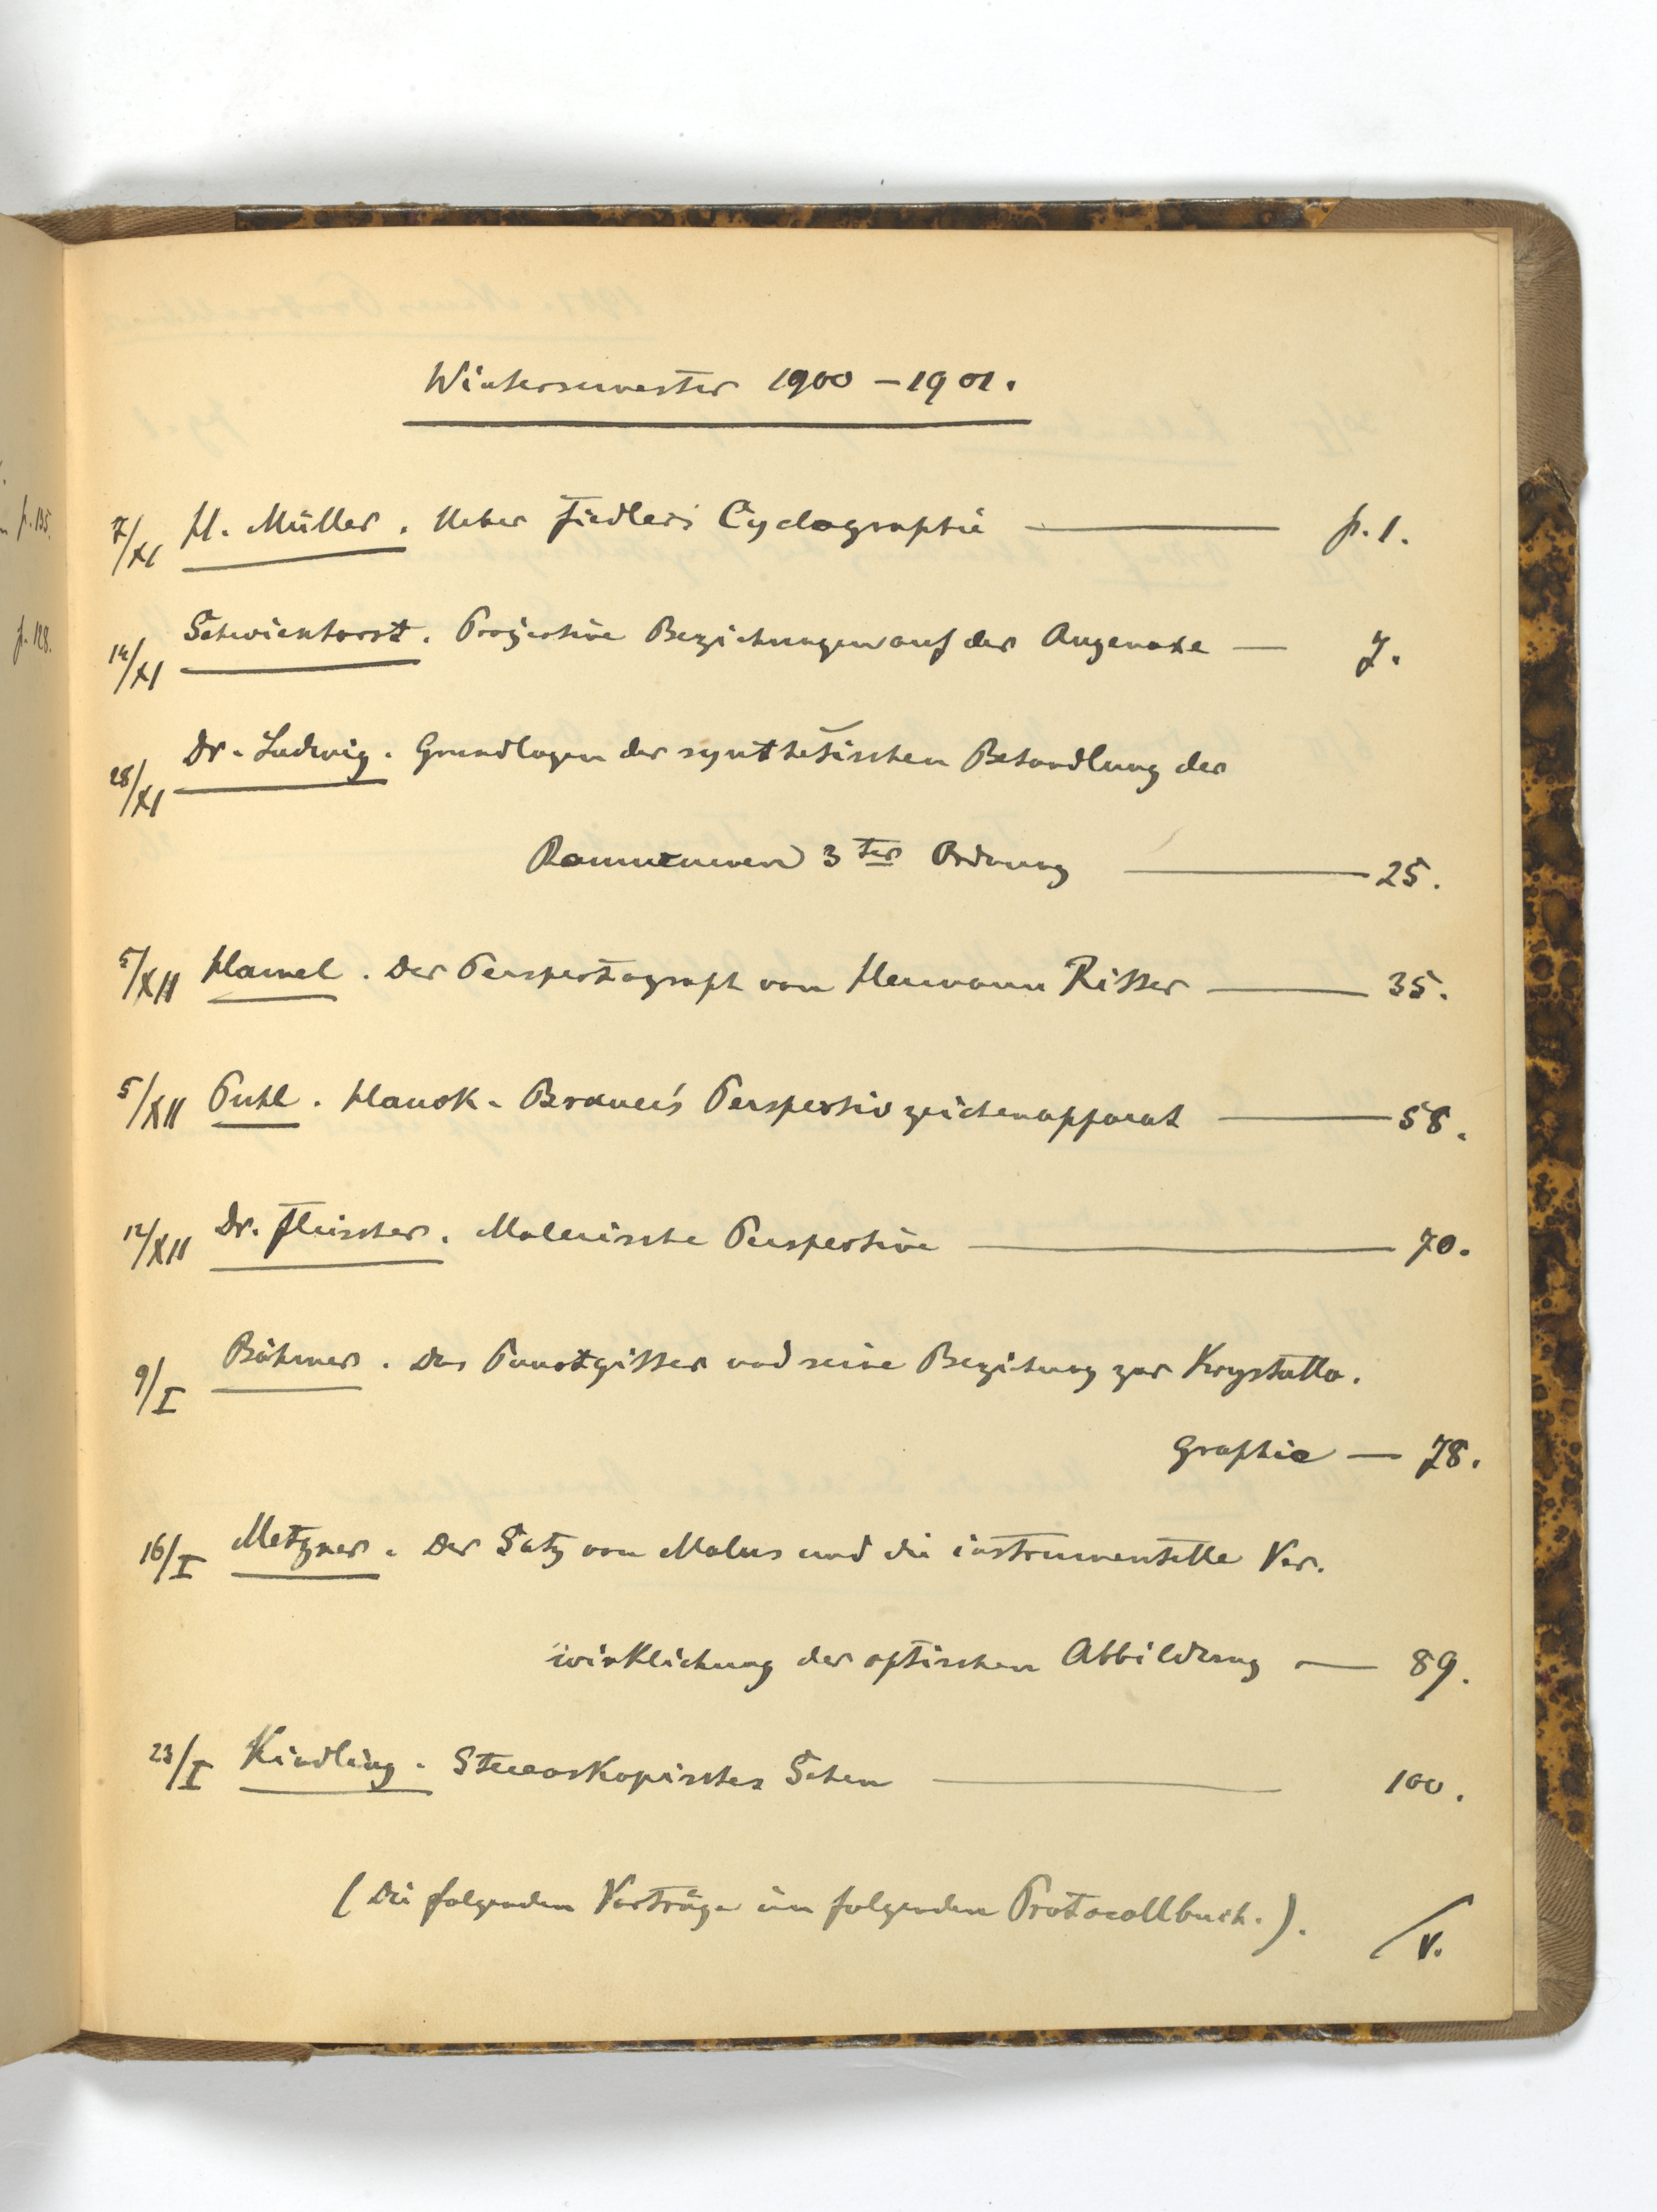 Wintersemester 1900 – 1901.
7/XI H. Müller. Ueber Fiedler's Cyclographie — p. 1.
14/XI Schwienhorst. Projective Beziehungen auf der Augenaxe — 7.
28/XI Dr. Ludwig. Grundlagen der synthetischen Behandlung der
Raumcurven 3ter Ordnung — 25.
5/XII Hamel. Der Perspectograph von Hermann Ritter — 35.
5/XII Puhl. Hauck-Brauer's Perspectivzeichenapparat — 58.
12/XII Dr. Fleischer. Malerische Perspective — 70.
9/I Böhmer. Das Punctgitter und seine Beziehung zur Krystallo-
graphie — 78.
16/I Metzner. Der Satz von Malus und die instrumentelle Ver-
wirklichung der optischen Abbildung — 89.
23/I Kindling. Stereoskopisches Sehen — 100.
(Die folgenden Vorträge im folgenden Protocollbuch.).
/v.
p. 135.
p. 128.